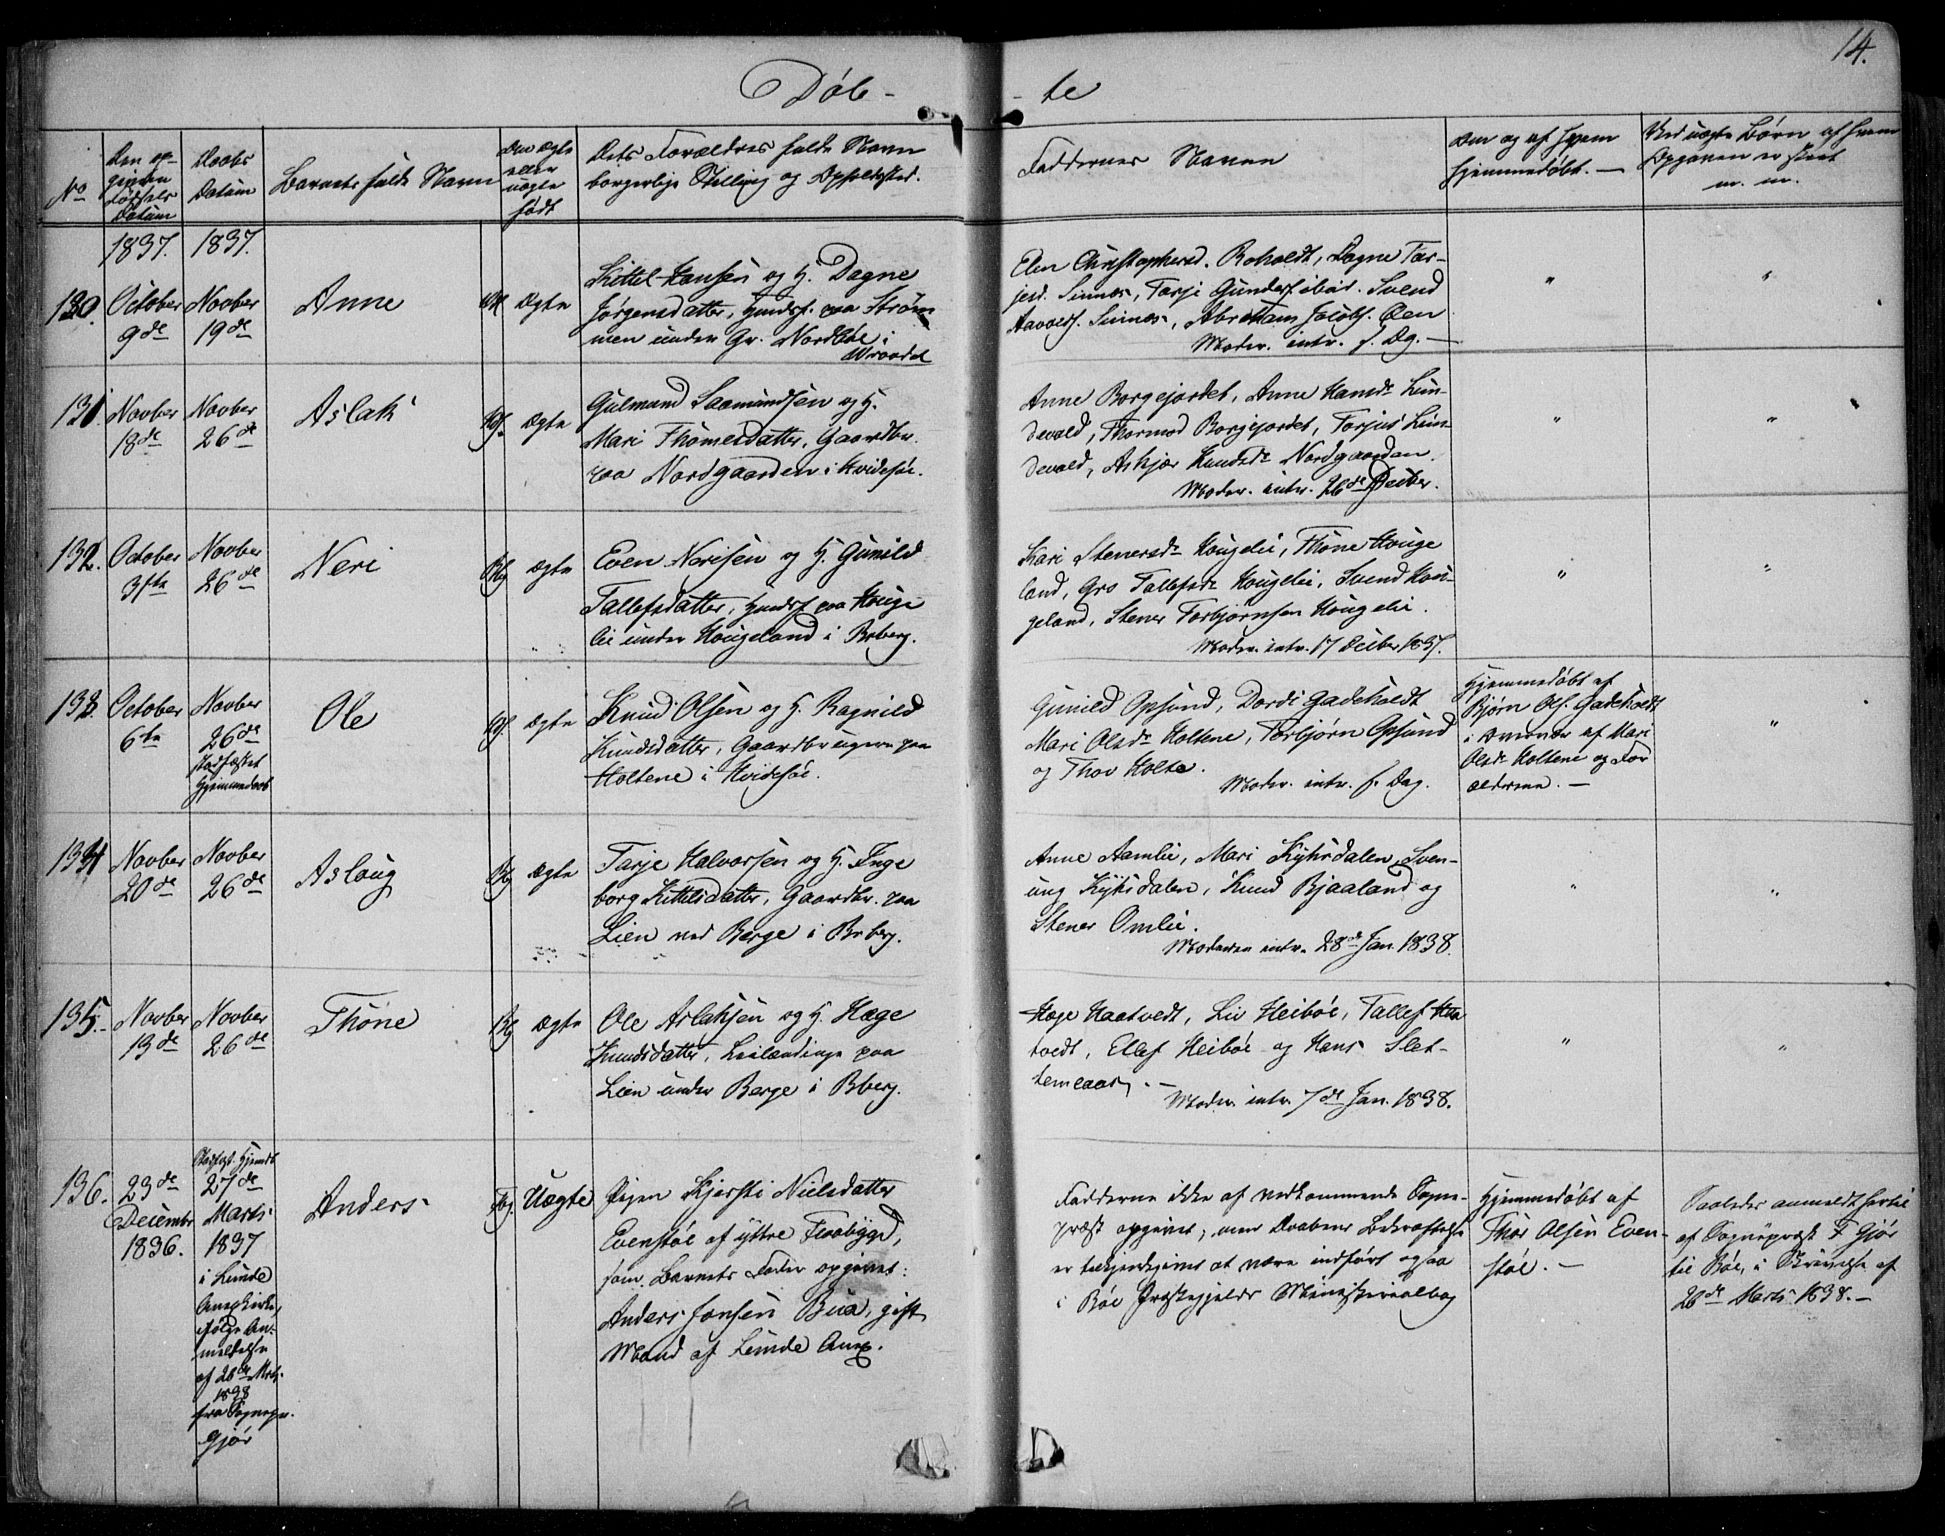 14.
Døb-
-te
No
Den op-
given
Fødsels
Datum
Daabs
Datum
Barnets fulde Navn
Om Ægte
eller
uægte
født
Dets Forældres fulde Navn
borgerlige Stilling og Opholdsted.
Faddernes Navne
Om og af hvem
hjemmedøbt. —
Ved uægte Børn af hvem
Opgaven er skeet
m. m.
1837. 1837.
130. October
9de
Novber
19de
Anne
Ægte
Kittel Hansen og H. Dagne
Jørgensdatter, Huusf. paa Strøm
men under Gr. Nordbøe i
Wraadal
Elen Christophersd. Roholdt, Dagne Tar-
jesd. Sinnes, Tarje Gunders. ibid. Svend
Aavolds. Sinnes, Abraham Jacobs. Øen
Moder. intr. s. Dg. —
131. Novber
18de
Novber
26de
Aslak
Ægte
Gulmund Saamundsen og H.
Mari Thomesdatter, Gaardbr.
paa Nordgaarden i Hvidesøe.
Anne Borgejordet, Anne Hansdr Lun-
devald, Thormod Borgejordet, Torjus Lun-
devald, Askjær Knudsdr Nordgaarden.
Moder. intr. 26de Decber.
132. October
3die
Novber
26de
Neri
Ægte
Even Nerisen og H. Gunild
Tallefsdatter, Huusf. paa Houge
lie under Hougeland i Brberg.
Kari Stenersdr Hougelie, Thone Houge
land, Gro Tallefsdr Hougelie, Svend Hou-
geland, Stener Torbjørnsen Hougelie.
Moder. intr. 17 Decber 1837.
133. October
6te
Novber
26de
stadfæstet
Hjemmedaab
Ole
Ægte
Knud Olsen og H. Ragnild
Knudsdatter, Gaardbrugere paa
Holtene i Hvidesøe.
Gunild Opsund, Dordi Gadeholdt
Mari Olsdr Holtene, Torbjørn Opsund
og Thov Holte.
Moder. intr. s. Dag.
Hjemmedøbt af
Bjørn Ols. Gadeholdt
i Overvær af Mari
Olsdr Holtene og For
ældrene. —
134 Novber
20de
Novber
26de
Aslaug
Ægte
Tarje Halvorsen og H. Inge
borg Kittelsdatter, Gaardbr. paa
Lien ved Berge i Brberg.
Anne Aamlie, Mari Kyhsdalen, Sven-
ung Kyhsdalen, Knud Bjaaland og
Stener Omlie.
Moderen intr. 28de Jan. 1838.
135. Novber
19de
Novber
26de
Thone
Ægte
Ole Aslaksen og H. Hæge
Knudsdatter, Leilændinge paa
Lien under Berge i Bberg.
Hæge Haatvedt, Liv Heibøe, Tallef Haa
tvedt, Ellef Heibøe og Hans Slet-
temeaas. —
Moder. intr. 7de Jan. 1838.
136. 23de
Decembr
1836.
Stadfæst. Hjemdb
27de
Marts
1837
i Lunde
Annexkirke,
ifølge An-
meldelse
af 28de Mrts.
1838
fra Sognepr.
Gjør
Anders
Uægte
Pigen Kjersti Nielsdatter
Evenstøe af yttre Flaabygd,
som Barnets Fader opgivet:
Anders Jonsen Bua, gift
Mand af Lunde Anex.
Fadderne ikke af vedkommende Sogne-
præst opgivet, men Daabens Bekræftelse
er tilkjendegivet at være indført ogsaa
i Bøe Præstegjelds Ministerialbog
Hjemmedøbt af
Thor Olsen Even-
støe. —
Saaledes anmeldt hertil
af Sognepræst F Gjør
til Bøe, i Skrivelse af
28de Marts 1838. —